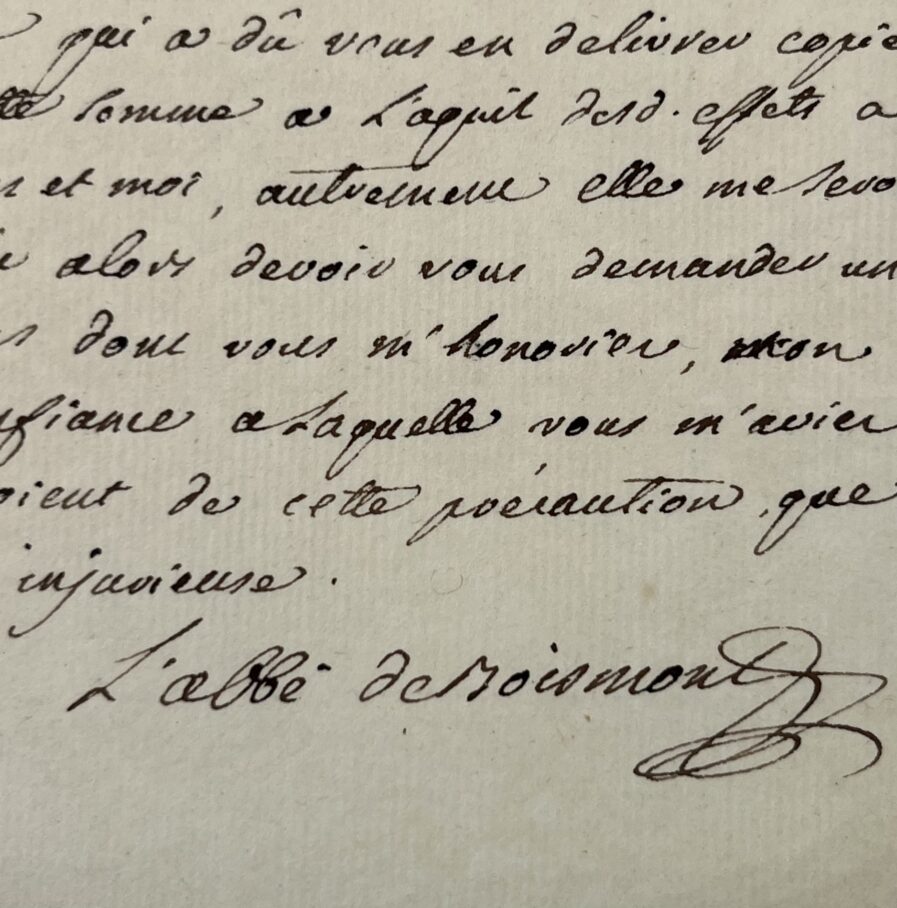 qui a dû vous en delivrer copie
somme a L'aquit desd. effets a
et moi, autrement elle me sero
alors devoir vous demander un
dont vous m'honoriez, mon
nfiance a Laquelle vous m'aviez
oient de cette précaution, que
injurieuse.
L'abbé de Boismont